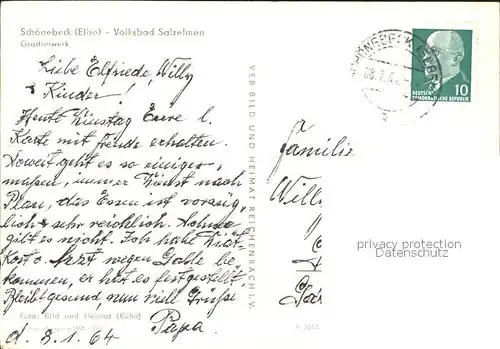 Schönebeck (Elbe) – Volksbad Salzelmen
Gradierwerk
Liebe Elfriede, Willy
Kinder!
Heute Dinstag Eure l.
Karte mit Freude erhalten.
Soweit geht es so einiger,
maßen, immer Dinst nach
Plan, das Essen ist vorzüg,
lich & sehr reichlich. Bohne
gilt es nicht. Ich habe Diät-
kost v. Arzt wegen Galle be,
kommen, er hat es festgestellt
Bleibt gesund, nun viel Grüße
Papa
d. 8. 1. 64
Foto: Bild und Heimat (Kühn)
VEB BILD UND HEIMAT REICHENBACH I. V.
SCHÖNEBECK (ELBE)
DEUTSCHE
DEMOKRATISCHE REPUBLIK
10
Familie
Willy
privacy protection
Datenschutz